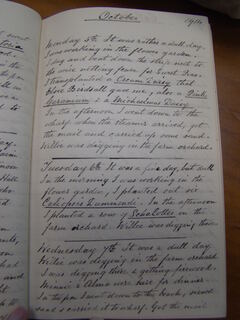 October 1914
Monday 5th It was rather a dull day.
I was working in the flower garden.
I dug and bent down the strip next to
the wire netting fence for Sweet Peas.
Transplanted a Cream Daisy that
Clive Birdsall gave me, also a Pink
Geranium & a Michaelmas Daisy.
In the afternoon I went down to the
wharf when the steamer arrived, got
the mail and carried up some wood.
Willie was digging in the farm orchard.
Tuesday 6th It was a fine day, but dull
in the morning I was working in the
flower garden, I planted out six
Calliopsis Drummondi. In the afternoon
I planted a row of Schallottes in the
farm orchard. Willie was digging there.
Wednesday 7th It was a dull day.
Willie was digging in the farm orchard
I was digging there & getting firewood.
Minnie & Alma were here for dinner.
In the pm I went down to the beach,
and carried it to wharf. Got the mail